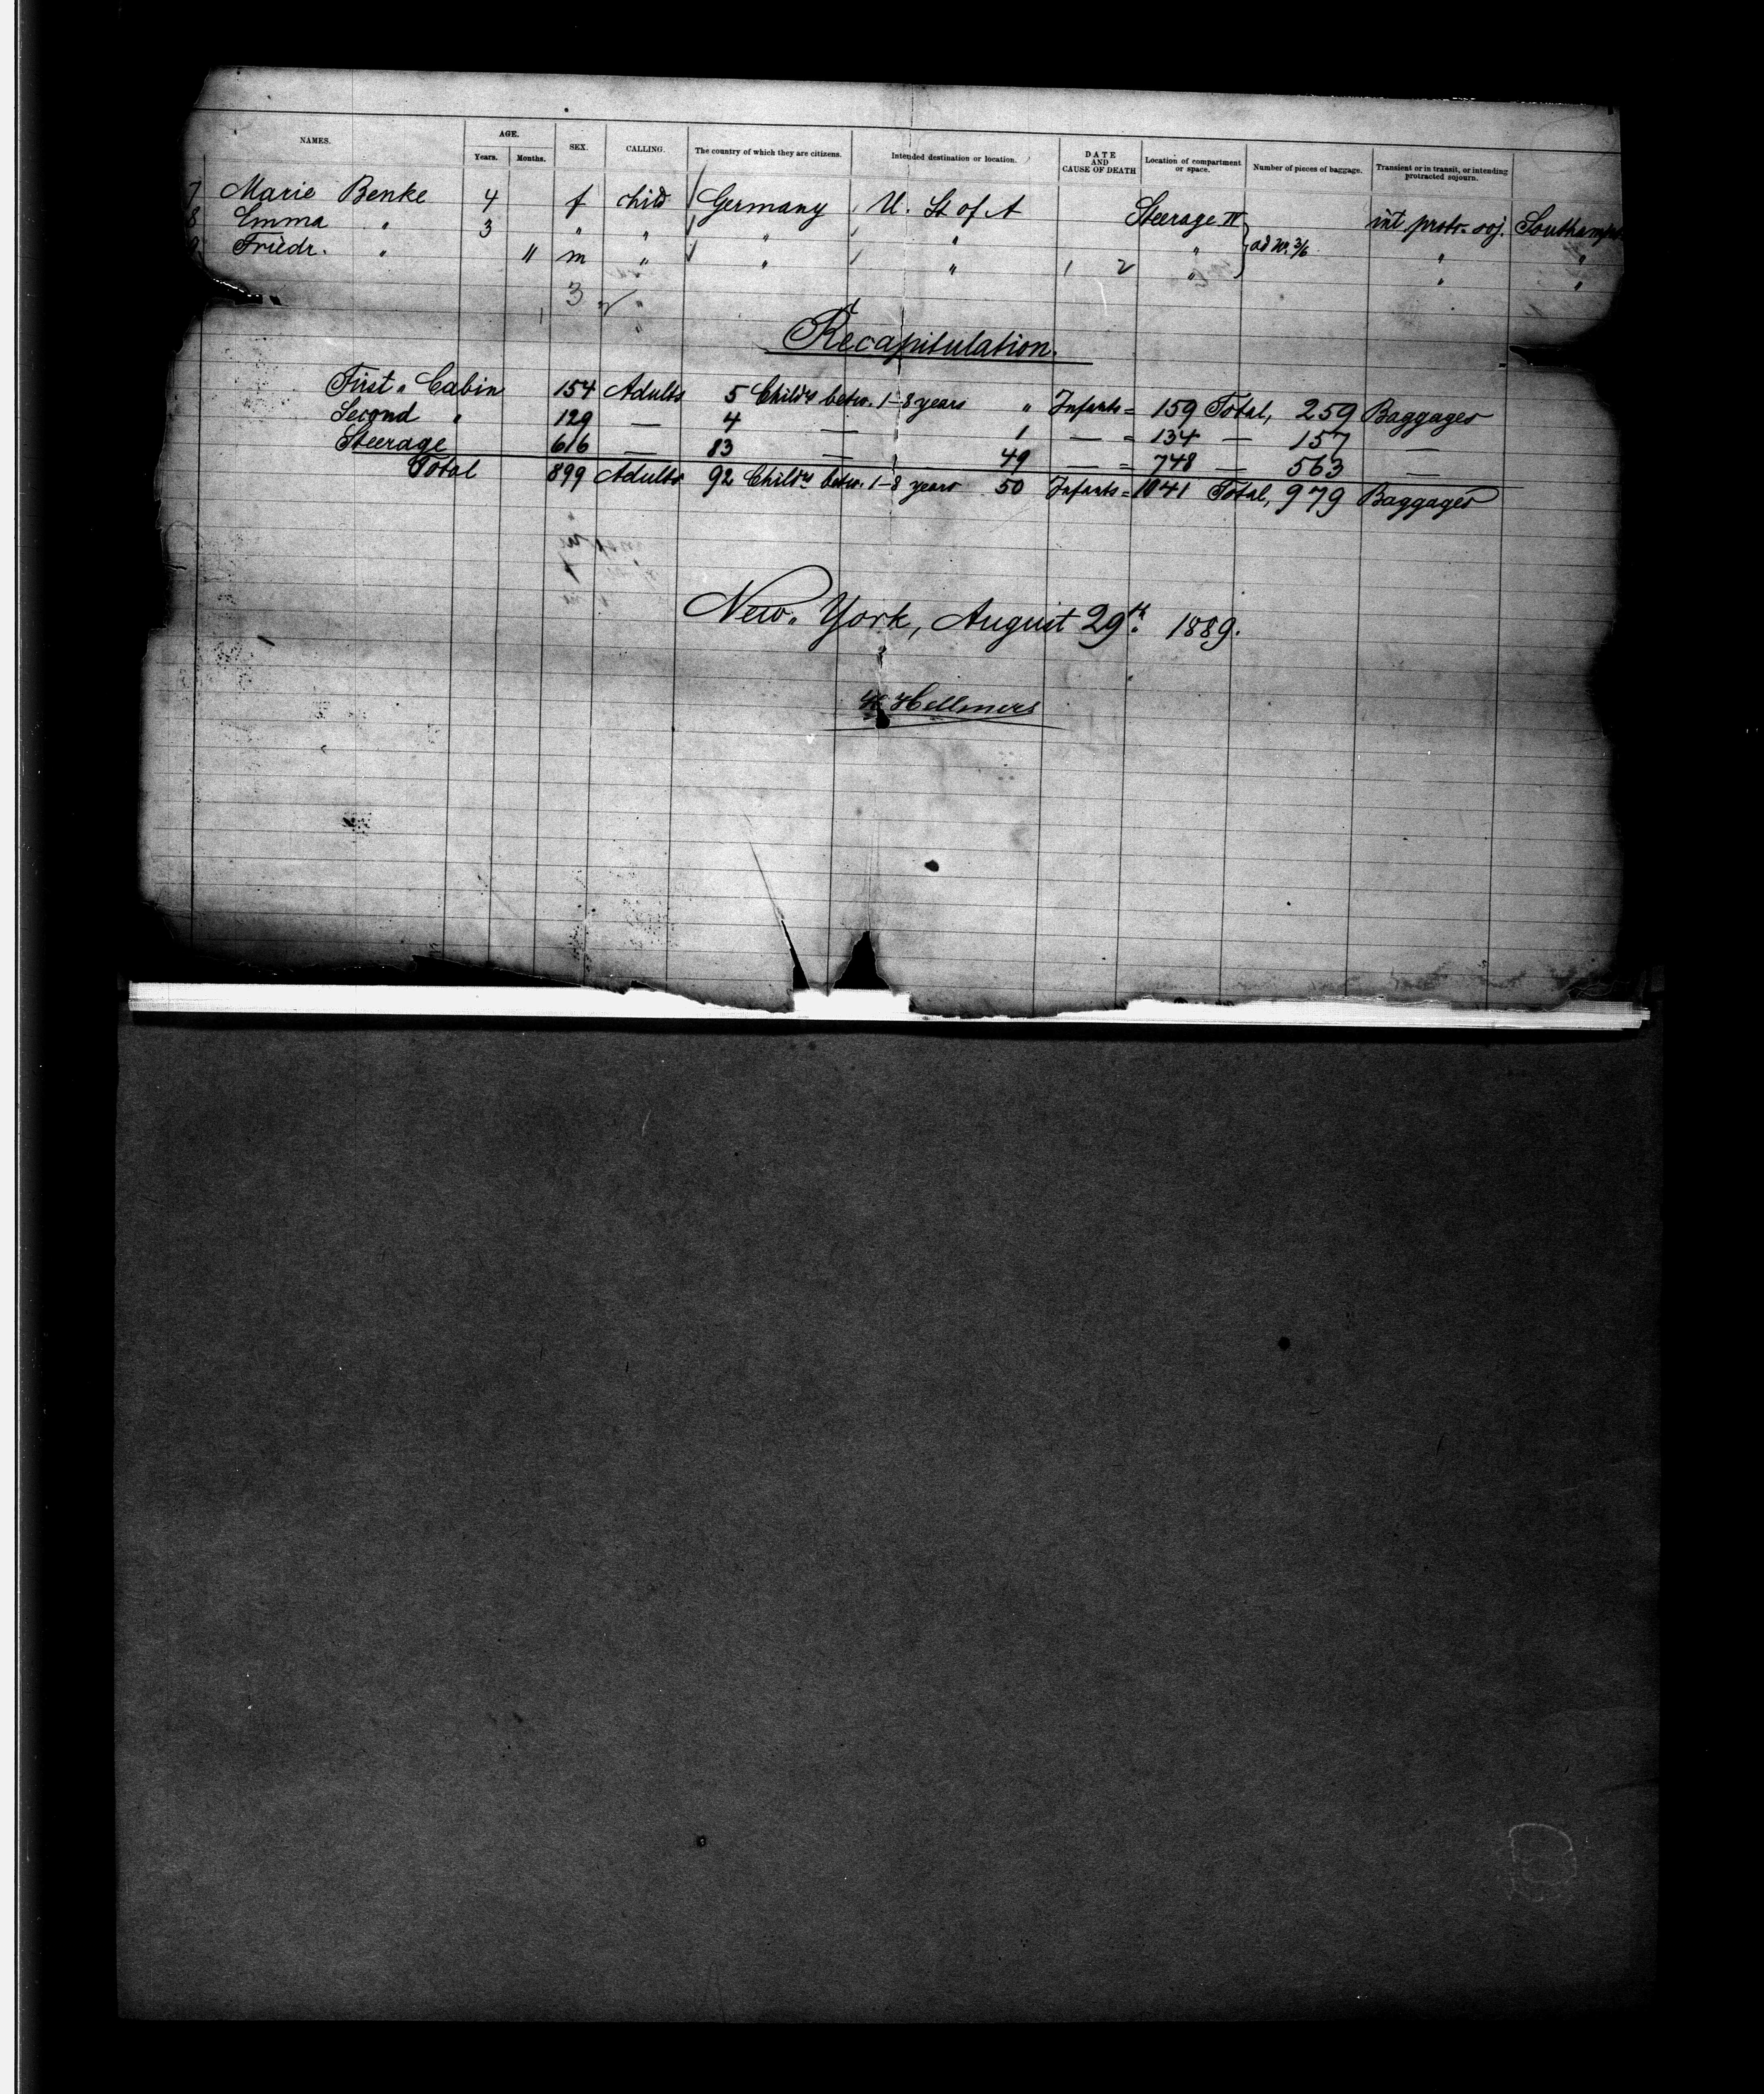 NAMES. AGE. Years. Months. SEX. CALLING. The country of which they are citizens. Intended destination or location. DATE AND CAUSE OF DEATH Location of compartment or space. Number of pieces of baggage. Transient or in transit, or intending protracted sojourn.
7 Marie Benke 4 f child Germany U. St of A Steerage IV int. protr. soj. Southampt
8 Emma " 3 " " " " " ad No. 3/6 " "
9 Friedr. " 11 m " " " 1 2 " " "
3
Recapitulation.
First " Cabin 154 Adults 5 Childr betw. 1-8 years " Infants = 159 Total, 259 Baggages
Second " 129 — 4 — 1 — = 134 — 157 —
Steerage 616 — 83 — 49 — = 748 — 563 —
Total 899 Adults 92 Childr betw. 1-8 years 50 Infants = 1041 Total, 979 Baggages
New York, August 29th. 1889.
H Hellmers